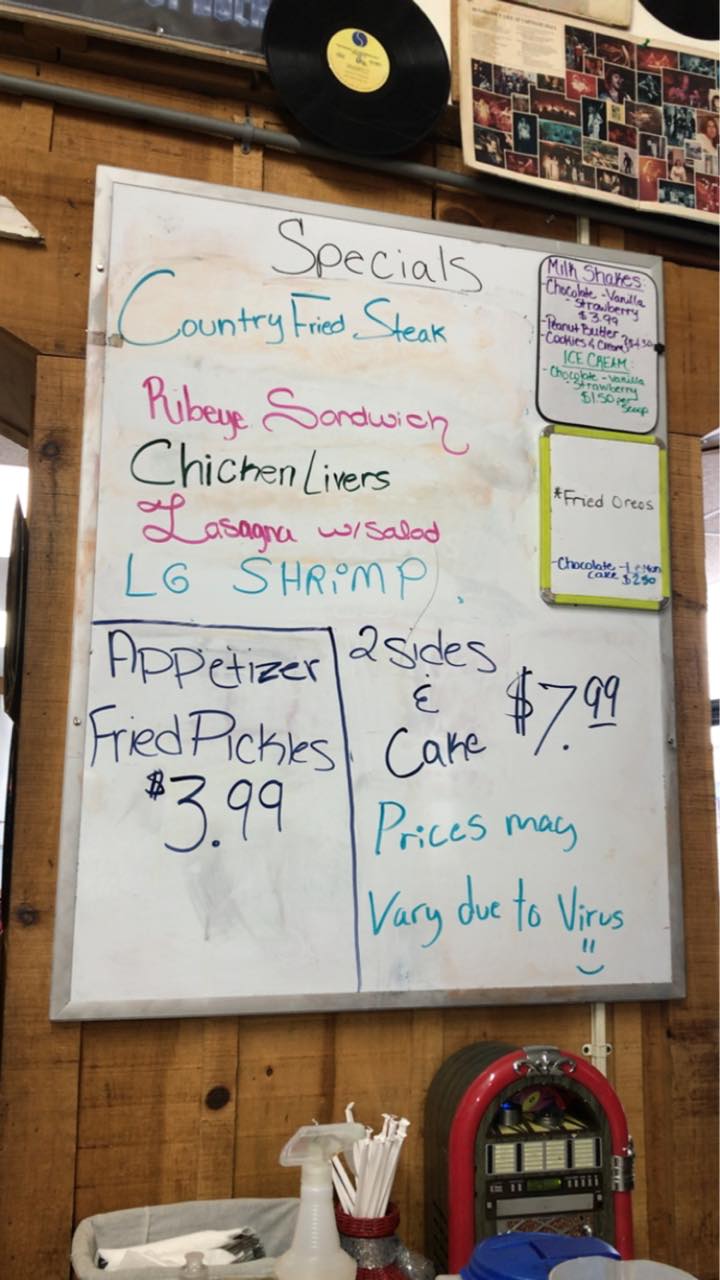 Specials
Country Fried Steak
Ribeye Sandwich
Chicken Livers
Lasagna w/Salad
LG SHRIMP
Appetizer
Fried Pickles
$3.99
2 sides
&
Cake
$7.99
Prices may
Vary due to Virus
Milk Shakes:
-Chocolate -Vanilla
-Strawberry
$3.99
-Peanut Butter
-Cookies & Cream $4.50
ICE CREAM:
-Chocolate -Vanilla
-Strawberry
$1.50 per
Scoop
*Fried Oreos
-Chocolate -Lemon
Cake $2.50